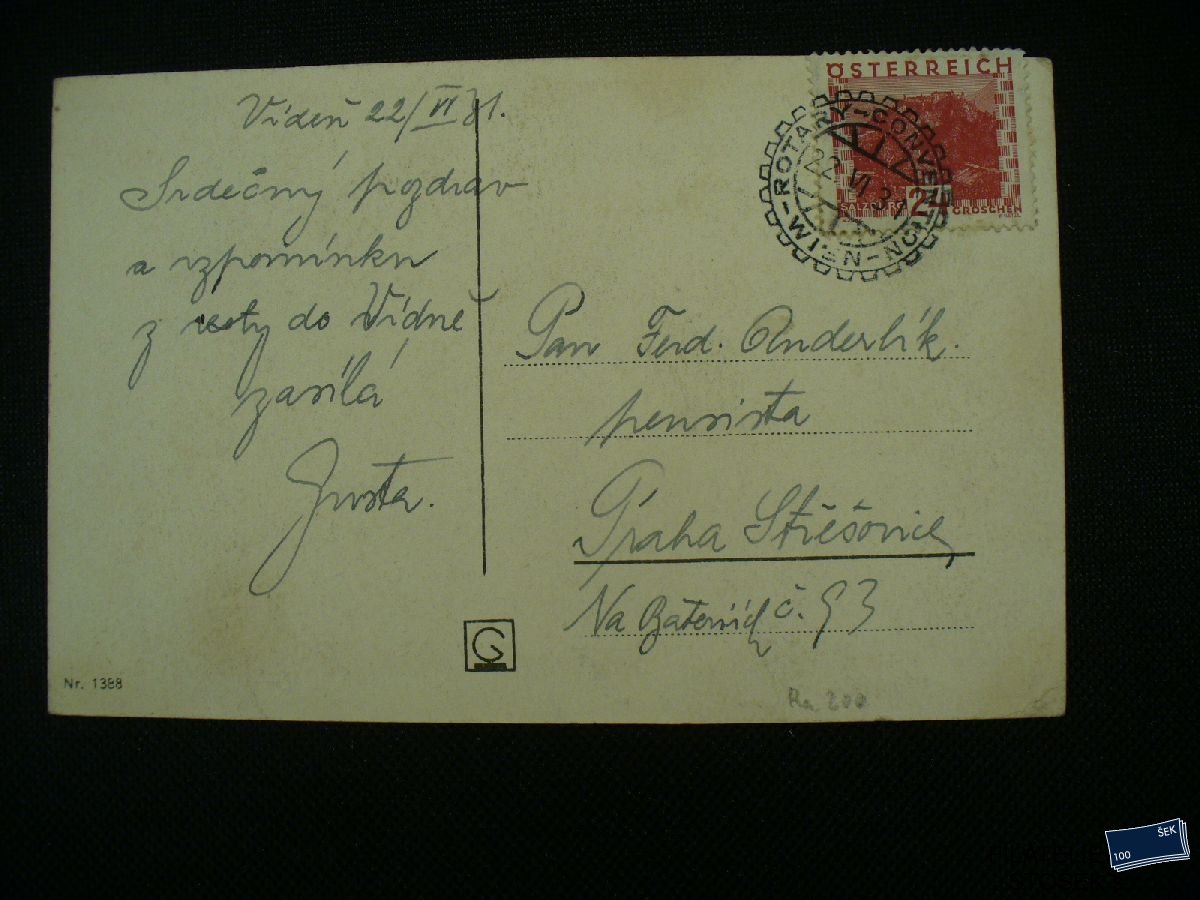 Vídeň 22/VI 31.
Srdečný pozdrav
a vzpomínku
z cesty do Vídně
zasílá
Gusta.
Nr. 1388
G
ÖSTERREICH
SALZBURG 24 GROSCHEN
WIEN-ROTARY-CONVENTION-
22 VI 31
Pan Ferd. Anderlík.
pensista
Praha Střešovice
Na č. 93
Ra 200
100 ŠEK